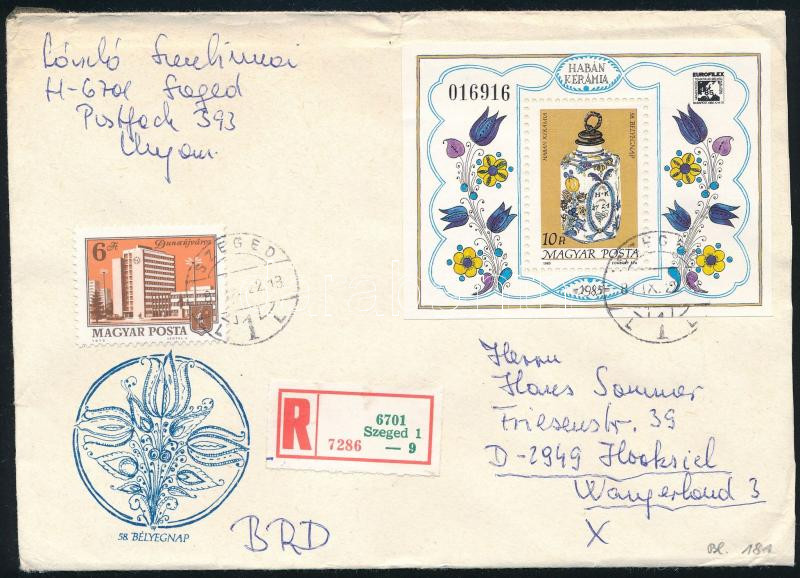 László
H-6701 Szeged
Postfach 393
Ungarn
016916
HABÁN
KERÁMIA
EUROFILEX
HABÁN KERÁMIA
58. BÉLYEGNAP
H K
1721
10 Ft
MAGYAR POSTA
1985
-1985-
6 Ft
Dunaújváros
MAGYAR POSTA
SZEGED
1
SZEGED
1
R
6701
Szeged 1
7286 — 9
Herrn
Hans Sommer
Friesenstr. 39
D-2949 Hooksiel
Wangerland 3
X
58. BÉLYEGNAP
BRD
Bl. 181